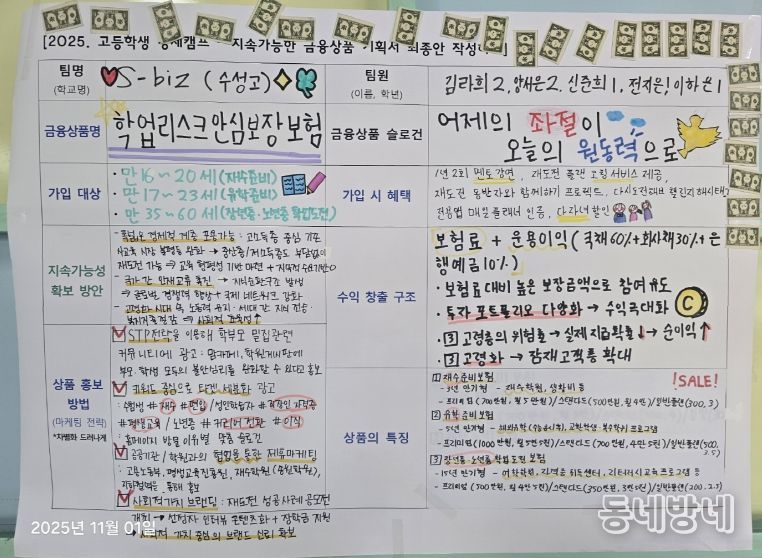 [2025. 고등학생 경제캠프 - 지속가능한 금융상품 기획서 최종안 작성
팀명
(학교명)
S-biz (수성고)
팀원
(이름, 학년)
김라희 2, 양서은 2, 신준희 1, 전지은 1, 이하은 1
금융상품명
학업리스크안심보장보험
금융상품 슬로건
어제의 좌절이
오늘의 원동력으로
가입 대상
• 만 16~20세 (재수준비)
• 만 17~23세 (유학준비)
• 만 35~60세 (장년층·노년층 학업도전)
가입 시 혜택
1년 2회 멘토강연, 재도전 플랜 코칭 서비스 제공,
재도전 동반자와 함께하기 프로젝트, 다시도전
인증, 다자녀할인
지속가능성
확보 방안
- 폭넓은 경제적 계층 포용가능: 고소득층 중심 기존
사교육 시장 불평등 완화 → 중산층/저소득층도 부담없이
재도전 가능 → 교육 형평성 기반 마련 + 지속적 수요기반
- 국가 간 인재교류 촉진 → 지식순환구조 형성
→ 글로벌 경쟁력 향상 + 국제 네트워크 강화
- 고령화 시대 속 노동력 유지·세대 간 지식 전승
복지지출절감 → 사회적 효율성↑
수익 창출 구조
보험료 + 운용이익 (국채 60% + 회사채 30% + 은
행예금 10%)
• 보험료 대비 높은 보장금액으로 참여 유도
• 투자 포트폴리오 다양화 → 수익극대화
• 3 고령층의 위험률 → 실제 지급확률↓ → 순이익↑
• 3 고령화 → 잠재고객층 확대
상품 홍보
방법
(마케팅 전략)
*차별화 드러나게
STP전략을 이용해 학부모 밀집 관련
커뮤니티에 광고: 맘카페, 학원게시판에
부모·학생 모두의 불안심리를 완화할 수 있다고 홍보
키워드 중심으로 타겟 세분화 광고
: 수험생 #재수 #편입 / 성인학습자 #직장인 자격증
#평생교육 / 노년층 #커리어 전환 #이직
: 홈페이지 방문 이유별 맞춤 슬로건
공공기관/학원과의 협업을 통한 제휴마케팅
: 고용노동부, 평생교육진흥원, 재수학원(종원학원),
통해 홍보
사회적가치 브랜딩: 재도전 성공사례 공모전
개최 → 선정자 인터뷰 콘텐츠화 + 장학금 지원
→ 사회적 가치 중심의 브랜드 신뢰 확보
상품의 특징
!SALE!
1 재수준비보험
- 3년 만기형 - 재수학원, 생활비 등
- 프리미엄 (700만원, 월 5만원) / 스탠다드 (500만원, 월 4만) / 일반플랜 (300, 3)
2 유학준비보험
- 5년 만기형 -
- 프리미엄 (1000만원, 월 5만5천) / 스탠다드 (700만원, 4만5천) / 일반플랜 (500, 3.5)
3 장년층·노년층 학업도전 보험
- 15년 만기형 - 어학학원, 자격증 취득센터, 리터러시교육프로그램 등
- 프리미엄 (500만원, 월 4만5천) / 스탠다드 (350만원, 3만5천) / 일반플랜 (200, 2.5)
2025년 11월 01일
동네방네